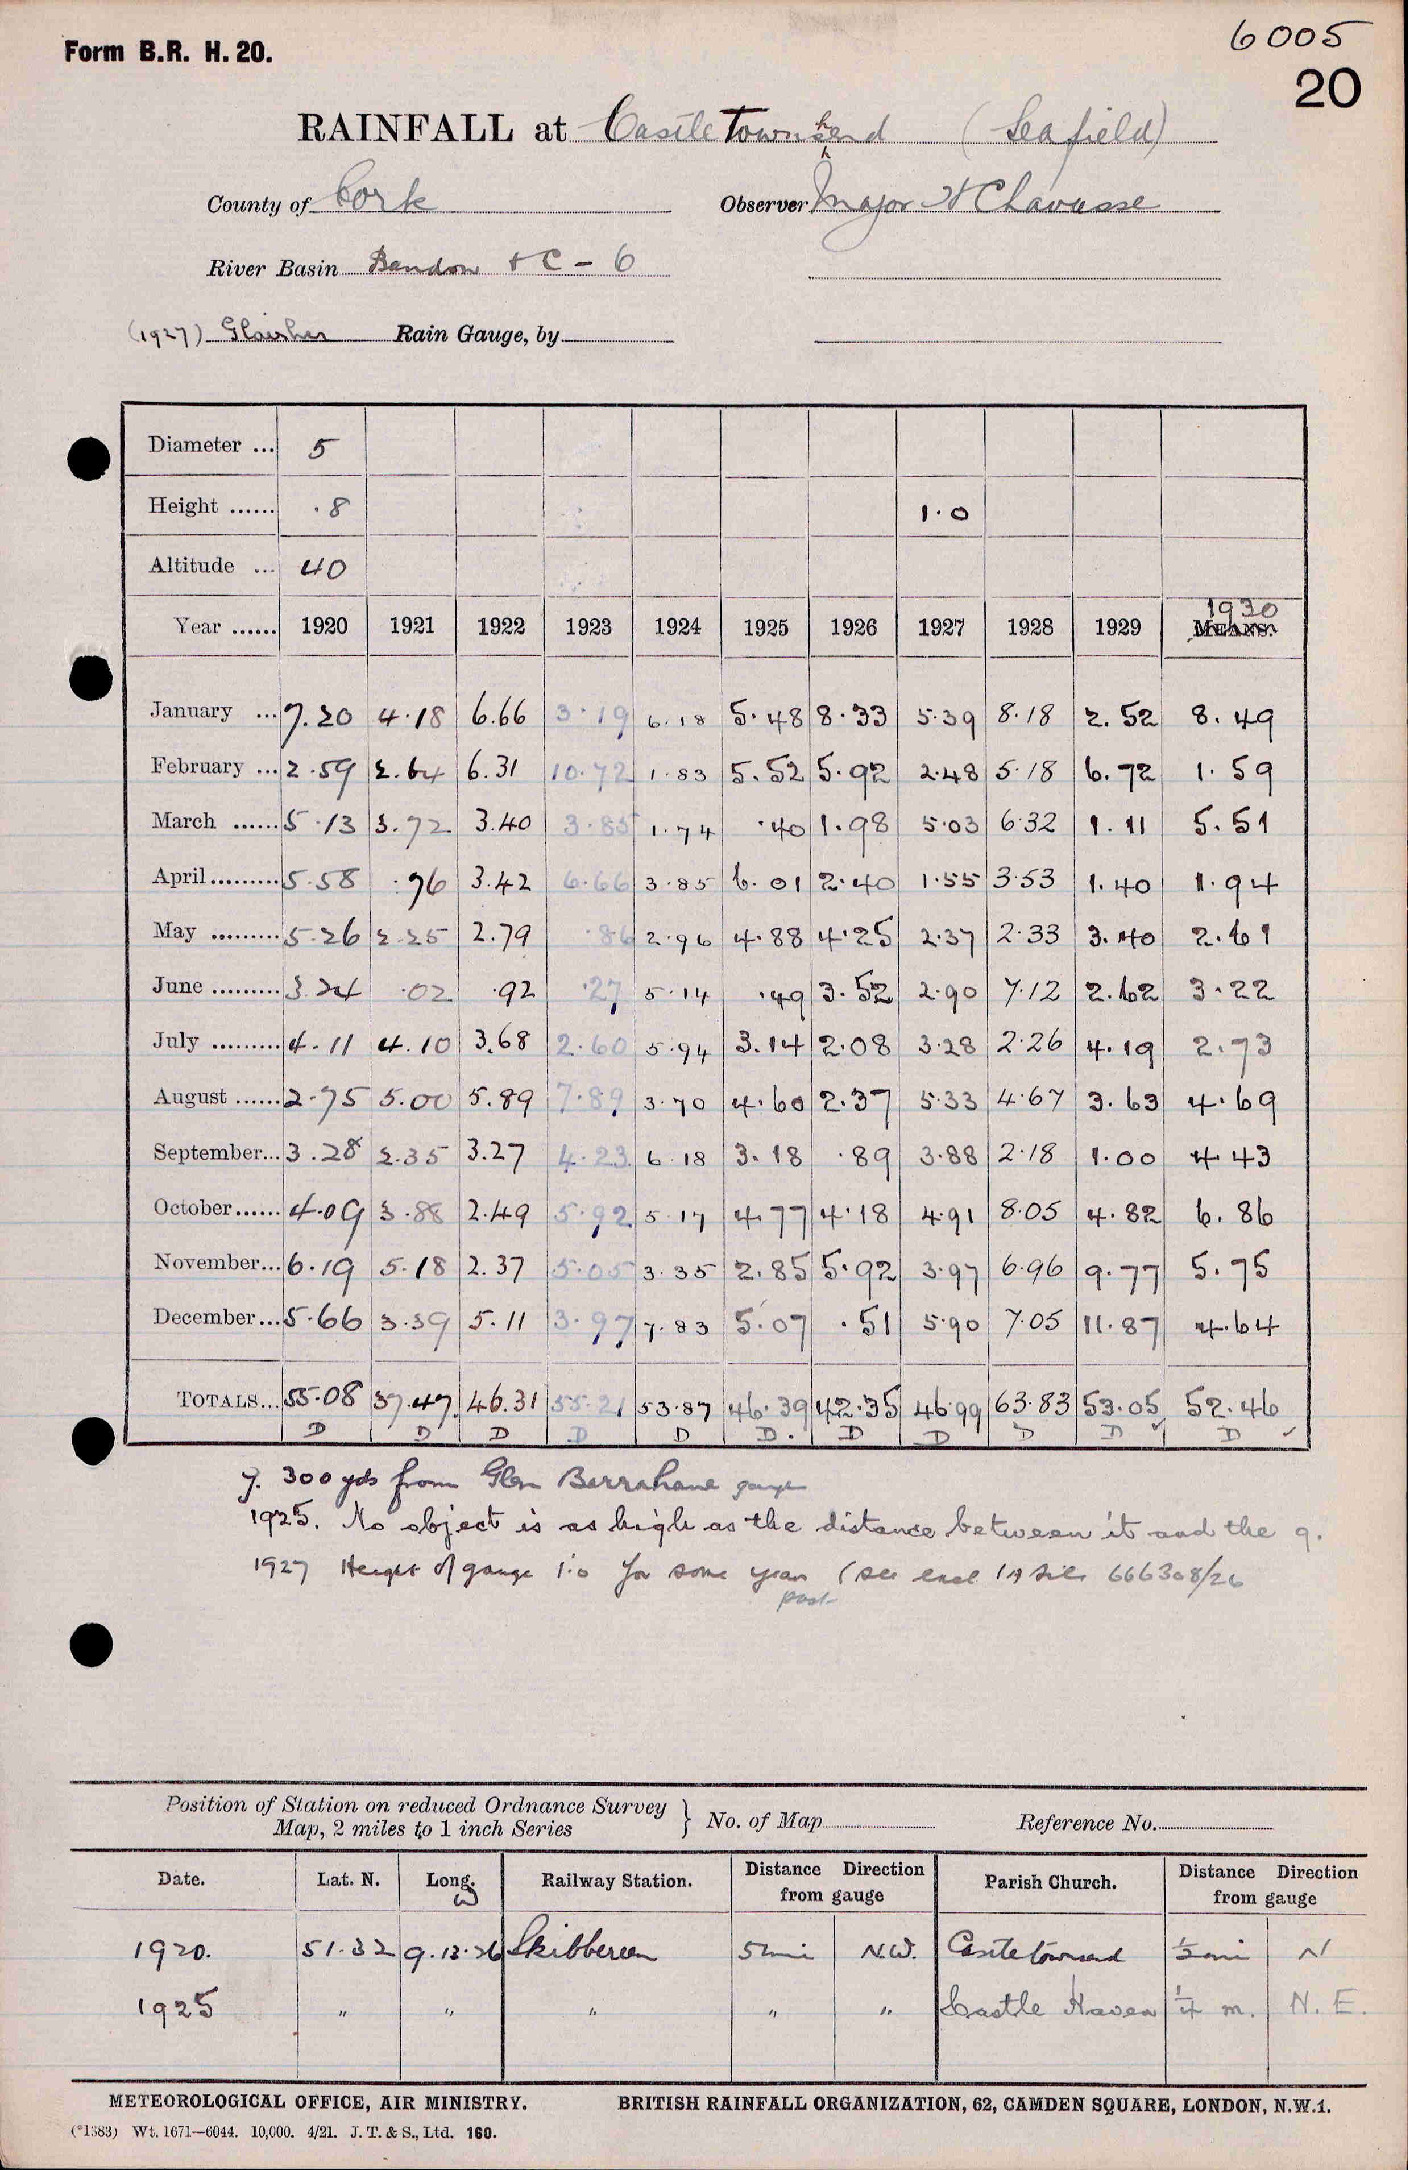 Form B.R. H. 20.
6005
20
RAINFALL at Castle Townshend (Seafield)
County of Cork Observer Major H Chavasse
River Basin Bandon + C - 6
(1927) Glaisher Rain Gauge, by
Diameter ... 5
Height ...... .8 1.0
Altitude ... 40
Year ...... 1920 1921 1922 1923 1924 1925 1926 1927 1928 1929 1930 MEANS.
January ... 7.20 4.18 6.66 3.19 6.18 5.48 8.33 5.39 8.18 2.52 8.49
February ... 2.59 2.64 6.31 10.72 1.83 5.52 5.92 2.48 5.18 6.72 1.59
March ...... 5.13 3.72 3.40 3.85 1.74 .40 1.98 5.03 6.32 1.11 5.51
April......... 5.58 .76 3.42 6.66 3.85 6.01 2.40 1.55 3.53 1.40 1.94
May ......... 5.26 2.25 2.79 .86 2.96 4.88 4.25 2.37 2.33 3.40 2.61
June ......... 3.24 .02 .92 .27 5.14 .49 3.52 2.90 7.12 2.62 3.22
July ......... 4.11 4.10 3.68 2.60 5.94 3.14 2.08 3.28 2.26 4.19 2.73
August ...... 2.75 5.00 5.89 7.89 3.70 4.60 2.37 5.33 4.67 3.63 4.69
September... 3.28 2.35 3.27 4.23 6.18 3.18 .89 3.88 2.18 1.00 4.43
October...... 4.09 3.88 2.49 5.92 5.17 4.77 4.18 4.91 8.05 4.82 6.86
November... 6.19 5.18 2.37 5.05 3.35 2.85 5.92 3.97 6.96 9.77 5.75
December... 5.66 3.39 5.11 3.97 7.83 5.07 .51 5.90 7.05 11.87 4.64
TOTALS... 55.08 37.47 46.31 55.21 53.87 46.39 42.35 46.99 63.83 53.05 52.46
D D D D D D. D D D D ✓ D ✓
g. 300 yds from Glen Barrahane gauge
1925. No object is as high as the distance between it and the g.
1927 Height of gauge 1.0 for some years (see encl 1A file 666308/26
past
Position of Station on reduced Ordnance Survey
Map, 2 miles to 1 inch Series } No. of Map Reference No.
Date. Lat. N. Long. W Railway Station. Distance Direction from gauge Parish Church. Distance Direction from gauge
1920. 51.32 9.13.26 Skibbereen 5 mi N.W. Castletownsend ½ mi N
1925 " " " " " Castle Haven ¼ m. N. E.
METEOROLOGICAL OFFICE, AIR MINISTRY. BRITISH RAINFALL ORGANIZATION, 62, CAMDEN SQUARE, LONDON, N.W.1.
(*1383) Wt. 1671—6044. 10,000. 4/21. J. T. & S., Ltd. 160.